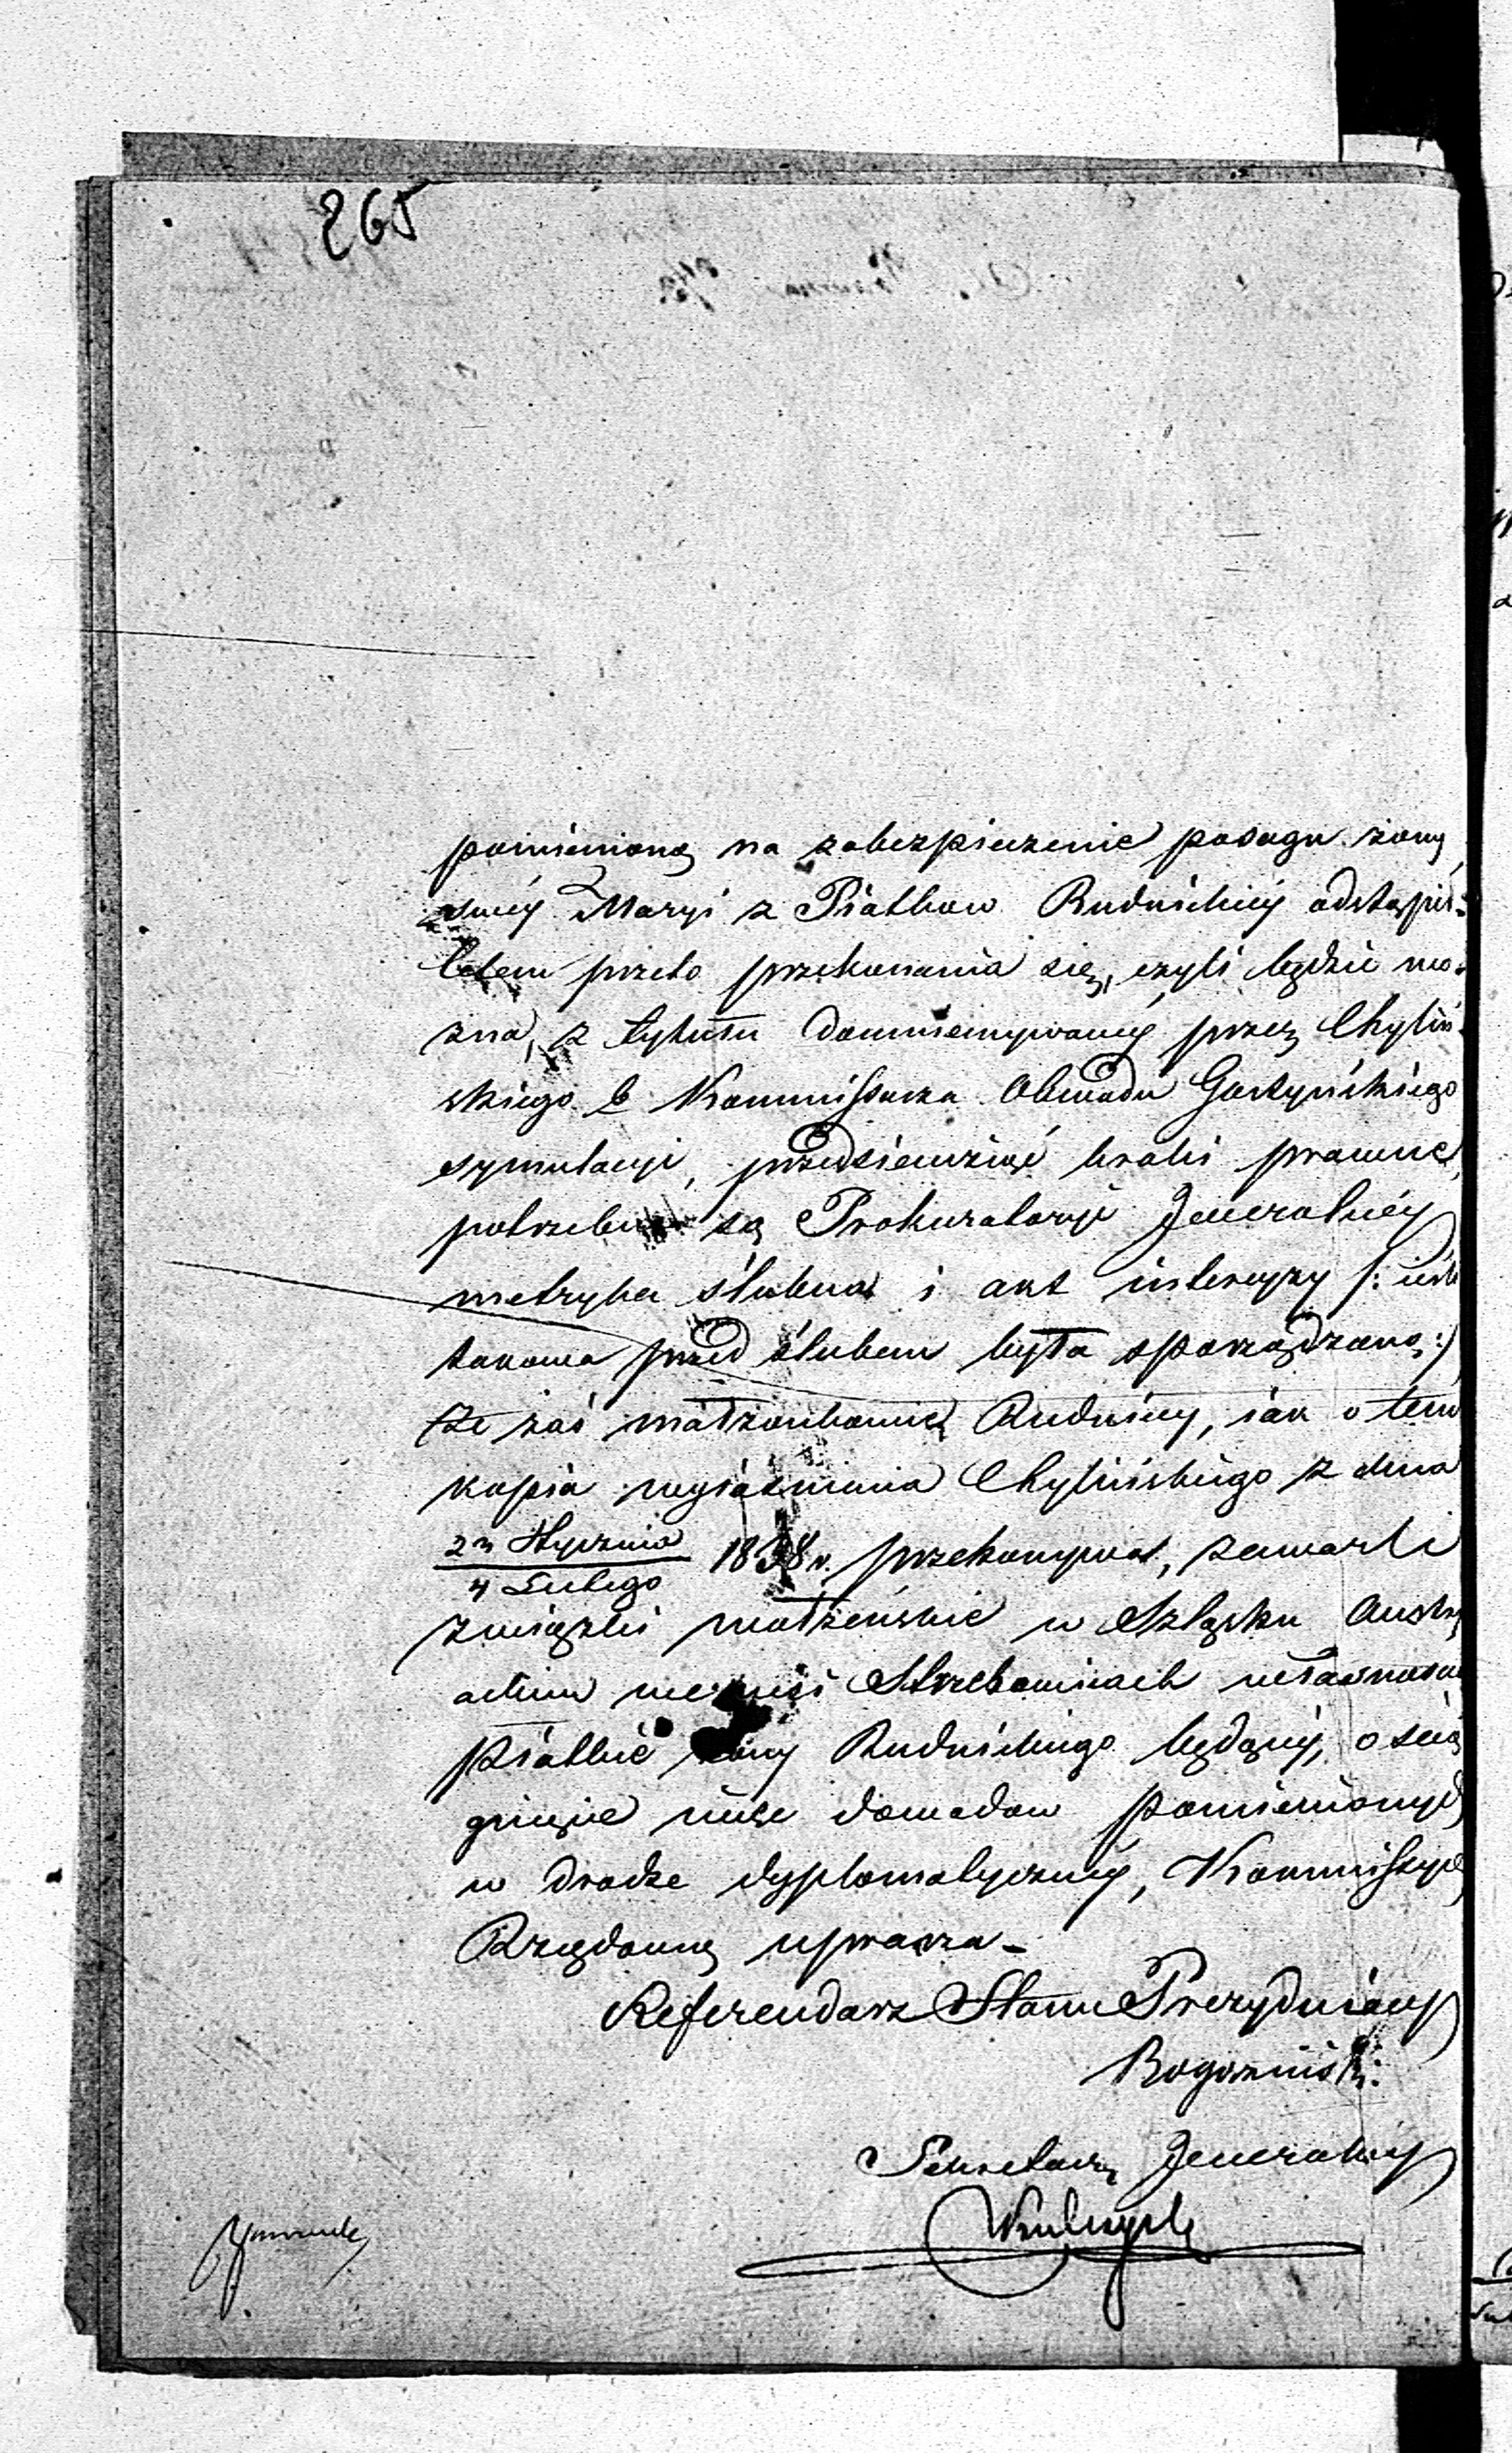 265
pomienioną na zabezpieczenie posagu żony
swey Maryi z Piatkow Rudnickiey odstąpił:
Celem przeto przekonania się, czyli będzie mo-
zna, z tytułu domniemywaney przez Chyliń-
skiego b Kommissarza Obwodu Gostyńskiego
symulacyi, przedsiewziąć kroki prawne,
potrzebne są Prokuratoryi Jeneralney
metryka ślubna i akt intercyzy /: ieśli
takowa przed ślubem była sporządzoną :/
Że zaś małzonkowie Rudniccy, iak o tem
kopia wyiaśnienia Chylińskiego z dnia
23 Stycznia
4 Lutego 1838 r. przekonywa, zawarli
związki małżeńskie w Szląsku Austry
ackim we wsi Strzebowicach własnością
Piatków żony Rudnickiego będącey, o ścią
gnięcie więc dowodow pomienionych
w drodze dyplomatyczney, Kommissyę
Rządową uprasza -
Referendarz Stanu Prezyduiący
Sekretarz Jeneralny